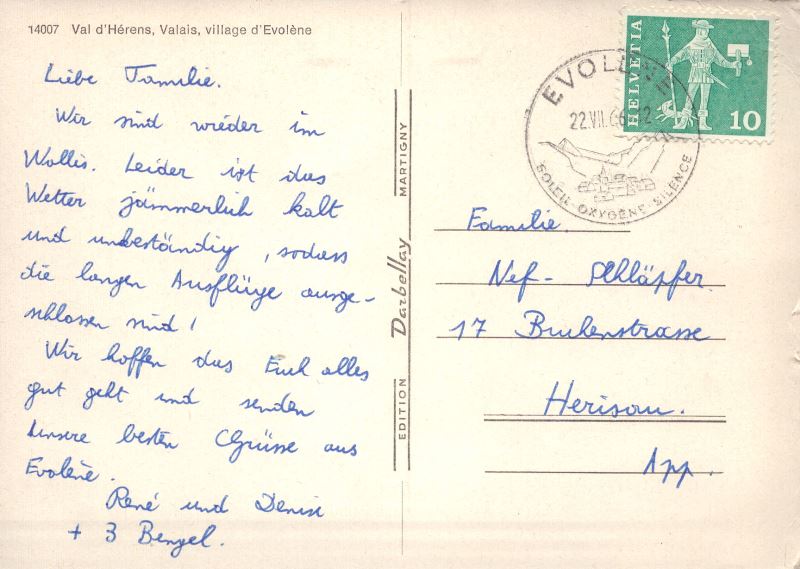 14007 Val d'Hérens, Valais, village d'Evolène
Liebe Familie.
Wir sind wieder im
Wallis. Leider ist das
Wetter jämmerlich kalt
und unbeständig, sodass
die langen Ausflüge ausge-
schlossen sind!
Wir hoffen das Euch alles
gut geht und senden
unsere besten Grüsse aus
Evolène.
René und Denise
+ 3 Bengel.
EDITION Darbellay MARTIGNY
HELVETIA
10
EVOLÈNE
22.VII.66
SOLEIL-OXYGÈNE-SILENCE
Familie.
Nef-Schläpfer
17 Buchenstrasse
Herisau.
App.